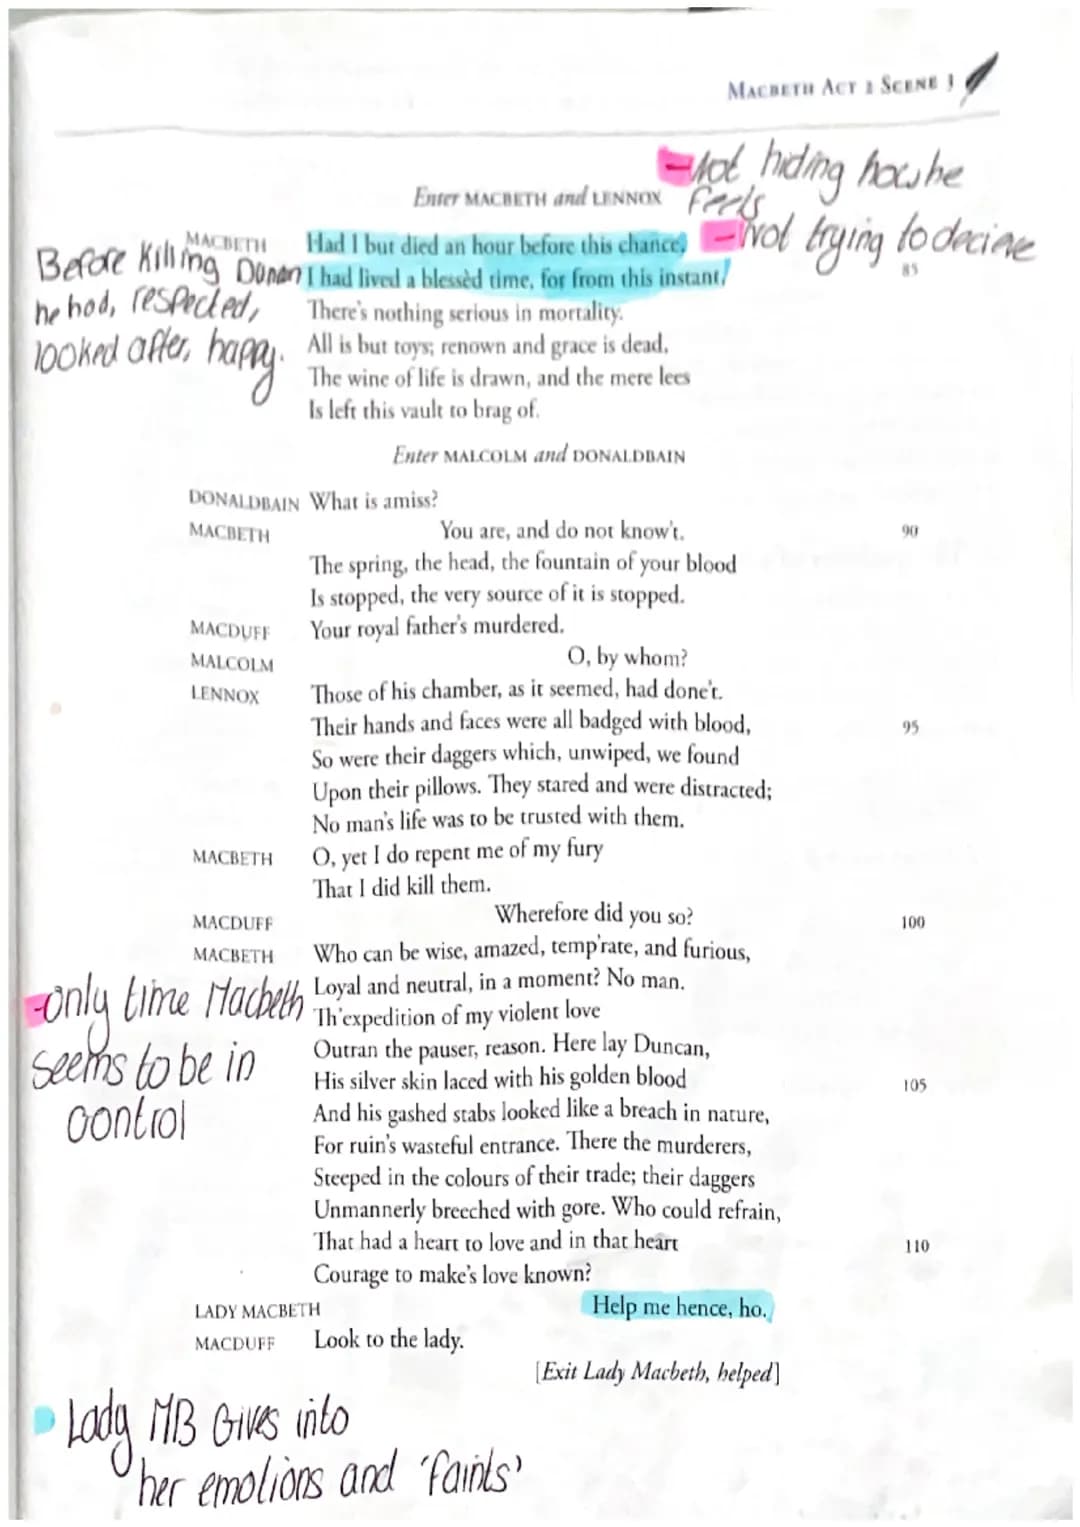 MACBETH ACT 2 SCENE 3
-Not hiding how he
feels
Enter MACBETH and LENNOX
-Not trying to decieve
MACBETH Had I but died an hour before this chance,
85
Before Killing Dunan I had lived a blessèd time, for from this instant,
he had, respected, There's nothing serious in mortality.
looked after, happy. All is but toys; renown and grace is dead,
The wine of life is drawn, and the mere lees
Is left this vault to brag of.
Enter MALCOLM and DONALDBAIN
DONALDBAIN What is amiss?
MACBETH You are, and do not know't. 90
The spring, the head, the fountain of your blood
Is stopped, the very source of it is stopped.
MACDUFF Your royal father's murdered.
MALCOLM O, by whom?
LENNOX Those of his chamber, as it seemed, had done't.
Their hands and faces were all badged with blood, 95
So were their daggers which, unwiped, we found
Upon their pillows. They stared and were distracted;
No man's life was to be trusted with them.
MACBETH O, yet I do repent me of my fury
That I did kill them.
MACDUFF Wherefore did you so? 100
MACBETH Who can be wise, amazed, temp'rate, and furious,
-only time Macbeth Loyal and neutral, in a moment? No man.
Th'expedition of my violent love
seems to be in Outran the pauser, reason. Here lay Duncan,
His silver skin laced with his golden blood 105
control And his gashed stabs looked like a breach in nature,
For ruin's wasteful entrance. There the murderers,
Steeped in the colours of their trade; their daggers
Unmannerly breeched with gore. Who could refrain,
That had a heart to love and in that heart 110
Courage to make's love known?
LADY MACBETH Help me hence, ho.
MACDUFF Look to the lady.
[Exit Lady Macbeth, helped]
Lady MB Gives into
her emotions and 'faints'